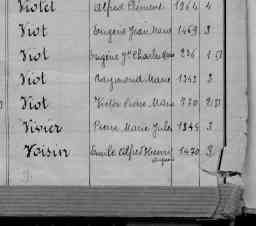 Violet Alfred Clément 1264 4
Viot Eugène Jean Marie 1469 3
Viot Eugène Charles 236 1
Viot Raymond Marie 1342 3
Viot Victor Pierre Marie 770 2
Vivier Pierre Marie Jules 1245 3
Voisin Emile Alfred Henri 1470 3